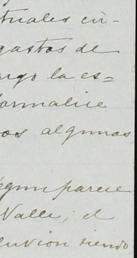 tuales cir-
gastos de
engo la es-
formalice
os algunas
egun parece
Valle; el
lucion siendo